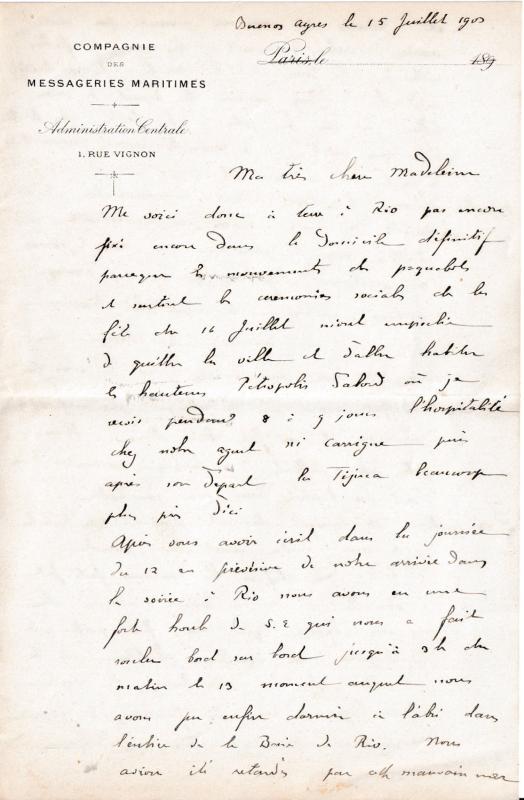 Buenos Ayres le 15 Juillet 1903
COMPAGNIE
DES
MESSAGERIES MARITIMES
Paris, le 189
Administration Centrale
1, RUE VIGNON
Ma très chère Madeleine
Me voici donc à terre à Rio pas encore
fixé encore dans le domicile définitif
parceque les mouvements des paquebots
et surtout les ceremonies sociales de la
fête du 14 Juillet m'ont empêché
de quitter la ville et d'aller habiter
les hauteurs Pétropolis d'abord où je
reçois pendant 8 à 9 jours l'hospitalité
chez notre agent puis
après son départ la Tijuca beaucoup
plus près d'ici
Après vous avoir écrit dans la journée
du 12 en prévision de notre arrivée dans
la soirée à Rio nous avons eu une
forte houle de S.E qui nous a fait
rouler bord sur bord jusqu'à 3h du
matin le 13 moment auquel nous
avons pu enfin dormir à l'abri dans
l'entrée de la Baie de Rio. Nous
avions été retardés par cette mauvaise mer